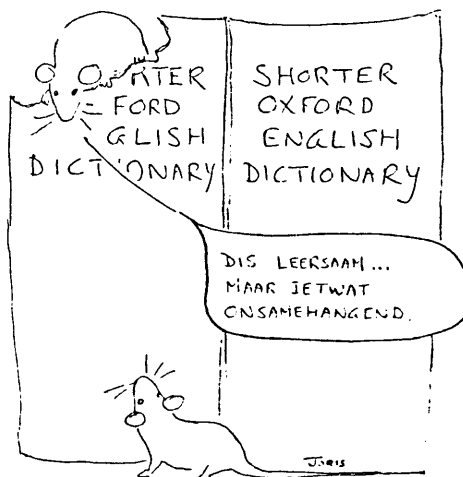 RTER
FORD
GLISH
DICTIONARY
SHORTER
OXFORD
ENGLISH
DICTIONARY
DIS LEERSAAM...
MAAR IETWAT
ONSAMEHANGEND.